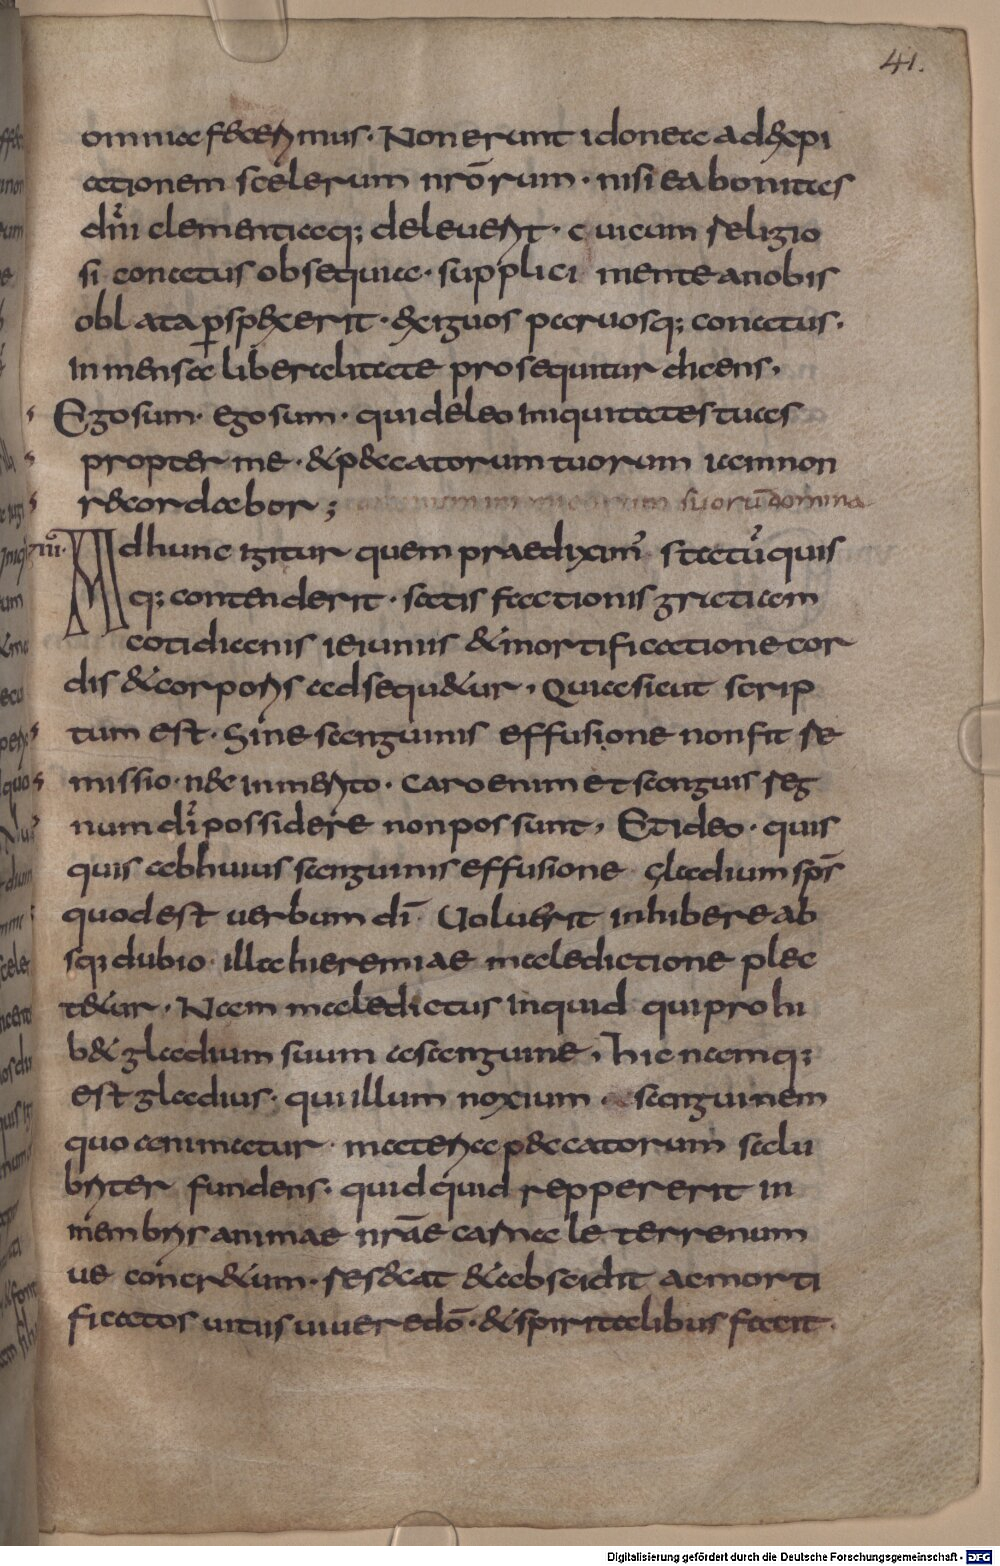 41.
omnia fecerimus. Non erunt idonea ad expi
ationem scelerum nr̄orum. nisi ea bonitas
dn̄i clementiaq; deleuerit. cuicum religio
si conatus obsequia. supplici mente anobis
oblata ꝑspexerit. exiguos paruosq; conatus.
inmensa liberalitate prosequitur dicens.
Ego sum. ego sum. qui deleo iniquitates tuas
propter me. & peccatorum tuorum iam non
recordabor;
suorū domina
VIIII. Ad hunc igitur quem praediximꝰ statū quis
q; contenderit. satis factionis gratiam
cotidianis ieiuniis & mortificatione cor
dis & corporis adsequ&ur, Quia sicut scrip
tum est. Sine sanguinis effusione non fit re
missio. nec inmerito. Caro enim et sanguis reg
num dī possidere non possunt, Et ideo. quis
quis ab huius sanguinis effusione gladium sp̄s
quod est uerbum dī. Uoluerit inhibere ab
sq; dubio. illa hieremiae maledictione plec
t&ur. Nam maledictus inquid qui prohi
b& gladium suum a sanguine, hic namq;
est gladius. qui illum noxium. sanguinem
quo animatur. materia peccatorum salu
briter fundens. quidquid reppererit in
membris animae nr̄ae carnale terrenum
ue concr&um. resecat & abscidit ac morti
ficatos uitiis uiuere dō. & spiritalibus facit.
Digitalisierung gefördert durch die Deutsche Forschungsgemeinschaft - DFG